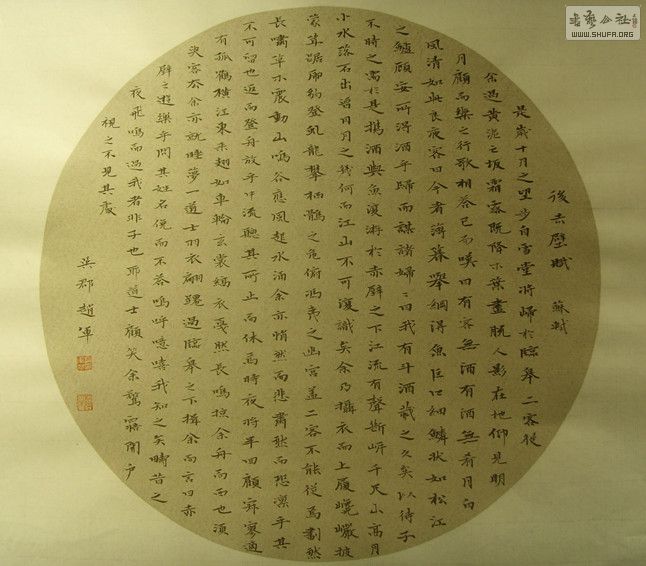 後赤壁賦 蘇軾
是歲十月之望步自雪堂將歸於臨皋二客從
余過黃泥之坂霜露既降木葉盡脫人影在地仰見明
月顧而樂之行歌相答已而嘆曰有客無酒有酒無肴月白
風清如此良夜客曰今者薄暮舉網得魚巨口細鱗狀如松江
之鱸顧安所得酒乎歸而謀諸婦〻曰我有斗酒藏之久矣以待子
不時之需於是攜酒與魚復游於赤壁之下江流有聲斷岸千尺山高月
小水落石出曾日月之幾何而江山不可復識矣余乃攝衣而上履巉巖披
蒙茸踞虎豹登虬龍攀栖鶻之危俯馮夷之幽宮蓋二客不能從焉劃然
長嘯草木震動山鳴谷應風起水涌余亦悄然而悲肅然而恐凜乎其
不可留也返而登舟放乎中流聽其所止而休焉時夜將半四顧寂寥適
有孤鶴橫江東來翅如車輪玄裳縞衣戛然長鳴掠余舟而西也須
臾客去余亦就睡夢一道士羽衣翩躚過臨皋之下揖余而言曰赤
壁之遊樂乎問其姓名俛而不答嗚呼噫嘻我知之矣疇昔之
夜飛鳴而過我者非子也耶道士顧笑余驚寤開戶
視之不見其處
吳郡趙軍
書藝公社
WWW.SHUFA.ORG